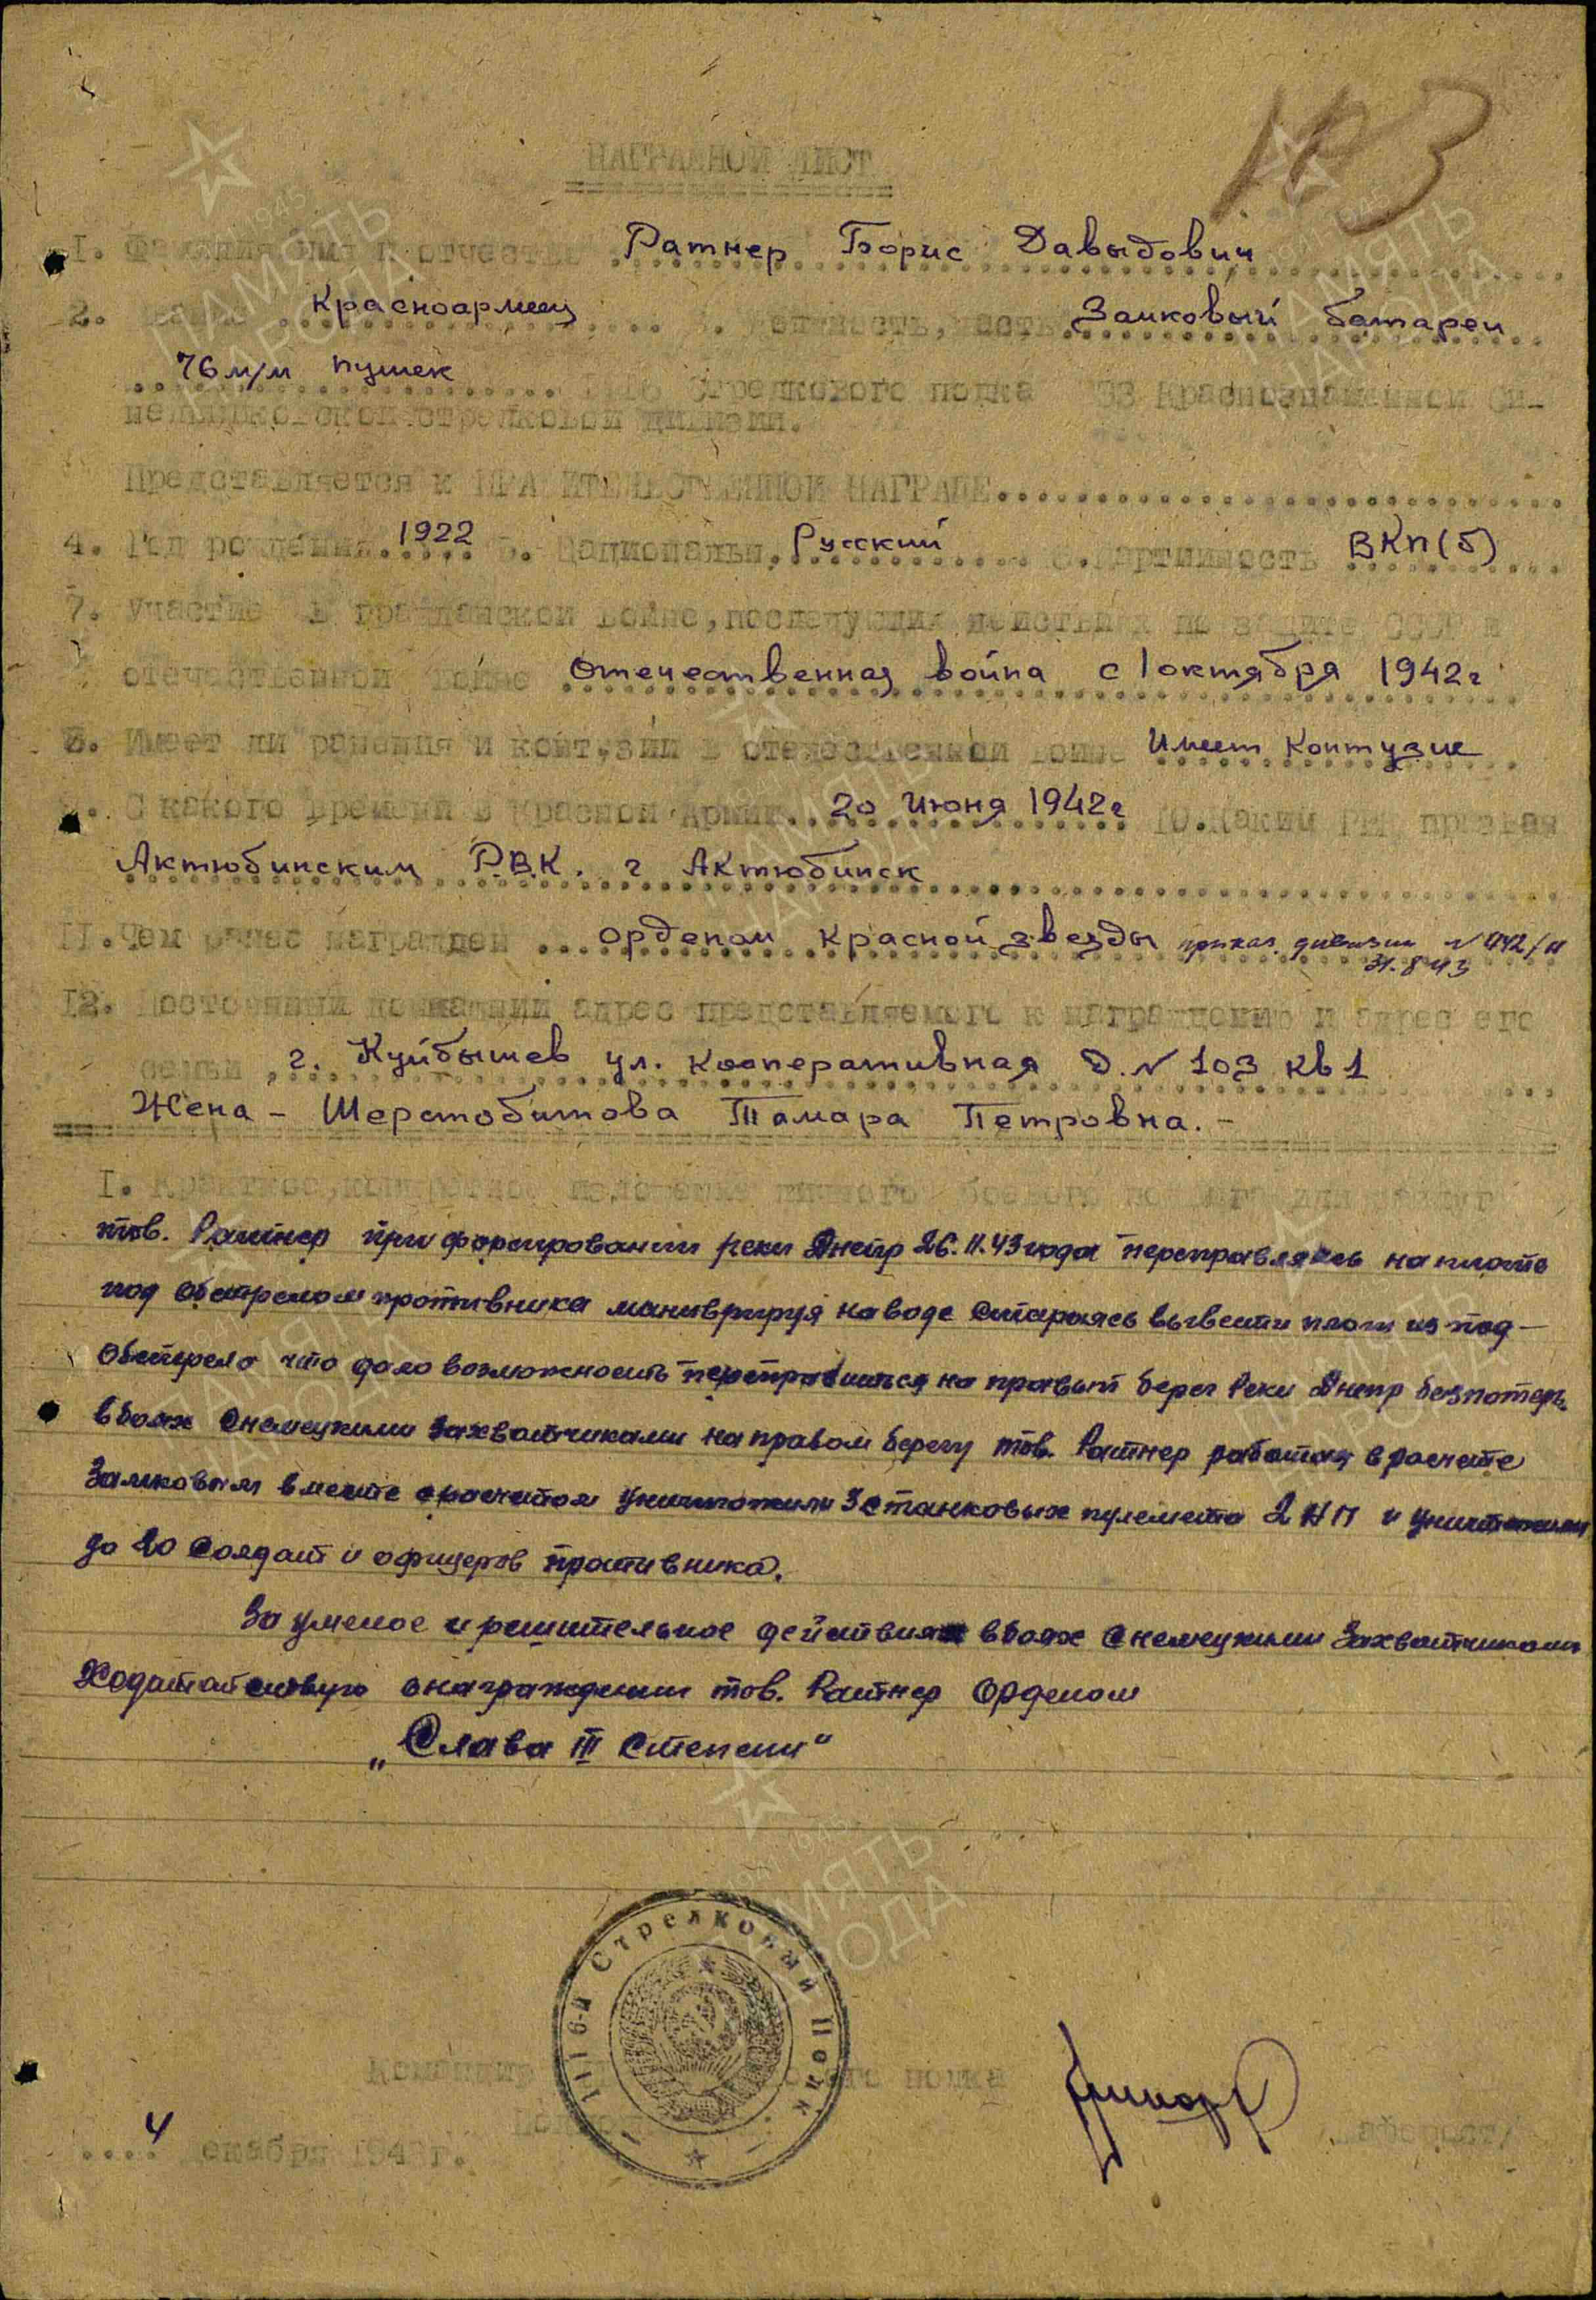 103
НАГРАДНОЙ ЛИСТ
1. Фамилия имя и отчество Ратнер Борис Давыдович
2. Звание Красноармеец 3. Должность, часть Замковый батареи
76 м/м пушек 1116 Стрелкового полка 333 Краснознаменной Си-
нельниковской стрелковой дивизии.
Представляется к ПРАВИТЕЛЬСТВЕННОЙ НАГРАДЕ
4. Год рождения 1922 5. Национальн. Русский 6. Партийность ВКП(б)
7. Участие в гражданской войне, последующих действиях по защите СССР и
отечественной войне Отечественная война с 1 октября 1942г
8. Имеет ли ранения и контузии в отечественной войне Имеет контузие
9. С какого времени в Красной Армии. 20 Июня 1942г 10. Каким РВК призван
Актюбинским Р.В.К. г Актюбинск
11. Чем ранее награжден Орденом Красной звезды приказ дивизии N 42/н
31.8 43
12. Постоянный домашний адрес представляемого к награждению и адрес его
семьи г. Куйбышев ул. Кооперативная д. N 103 кв 1
Жена - Шерстобитова Тамара Петровна. -
I. Краткое, конкретное изложение личного боевого подвига или заслуг
тов. Ратнер при форсировании реки Днепр 26.11.43 года переправляясь на плоте
под обстрелом противника маневрируя на воде стараясь вывести плот из под-
обстрела что дало возможность переправиться на правый берег реки Днепр без потерь.
в боях с немецкими захватчиками на правом берегу тов. Ратнер работая в расчете
Замковым вместе с расчетом уничтожили 3 станковых пулемета 2 НП и уничтожили
до 20 солдат и офицеров противника.
За умелое и решительное действия в боях с немецкими захватчиками
Ходатайствую о награждении тов. Ратнер Орденом
„Слава III степени"
1116-й Стрелковый Полк
Командир полка
4 декабря 1943г.
ПАМЯТЬ НАРОДА
1941 1945